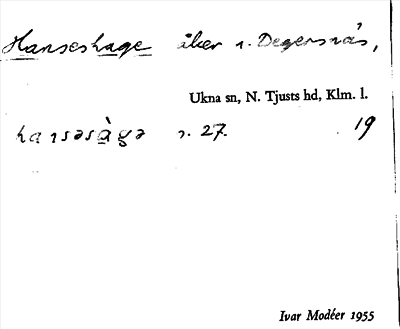 Hanseshage åker n. Degersnäs,
Ukna sn, N. Tjusts hd, Klm. l.
hansəsàgə n. 27. 19
Ivar Modéer 1955